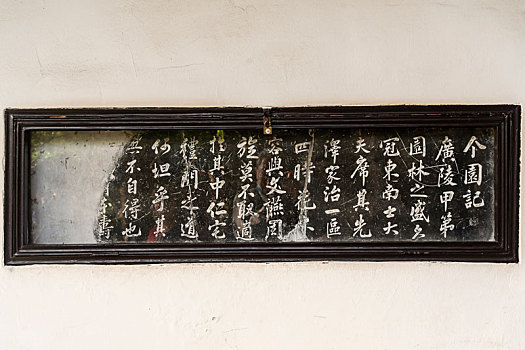 个園記
廣陵甲第
園林之盛名
冠東南士大
夫席其先
澤家治一區
四時花木
容與文讌周
旋莫不取適
於其中仁宅
禮門之道
何坦乎其
無不自得也